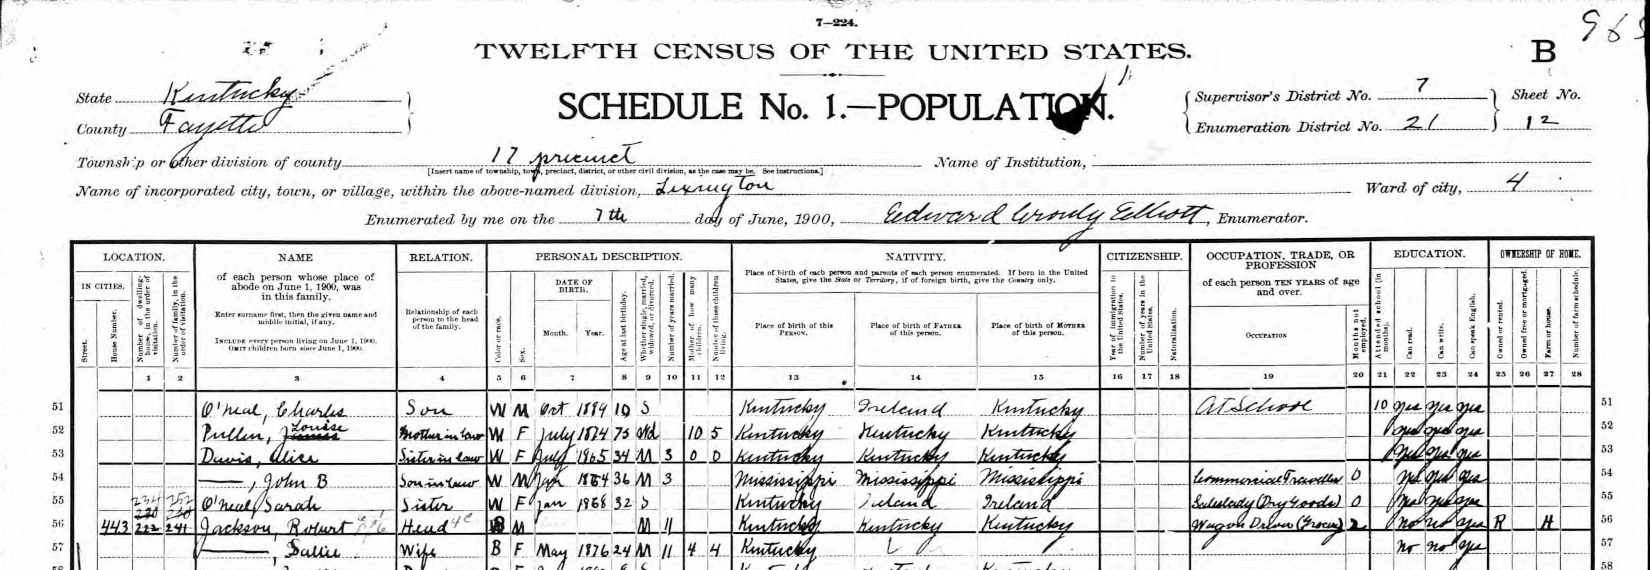 7—224.
963
TWELFTH CENSUS OF THE UNITED STATES.
B
State Kentucky
County Fayette
SCHEDULE No. 1.—POPULATION.
Supervisor's District No. 7
Enumeration District No. 21
Sheet No.
12
Township or other division of county 17 precinct
[Insert name of township, town, precinct, district, or other civil division, as the case may be. See instructions.]
Name of Institution,
Name of incorporated city, town, or village, within the above-named division, Lexington
Ward of city, 4
Enumerated by me on the 7th day of June, 1900, Edward Elliott, Enumerator.
LOCATION. NAME RELATION. PERSONAL DESCRIPTION. NATIVITY. CITIZENSHIP. OCCUPATION, TRADE, OR PROFESSION EDUCATION. OWNERSHIP OF HOME.
IN CITIES.
Street.
House Number.
Number of dwelling-house, in the order of visitation.
Number of family, in the order of visitation.
of each person whose place of abode on June 1, 1900, was in this family.
Enter surname first, then the given name and middle initial, if any.
INCLUDE every person living on June 1, 1900.
OMIT children born since June 1, 1900.
Relationship of each person to the head of the family.
Color or race.
Sex.
DATE OF BIRTH.
Month. Year.
Age at last birthday.
Whether single, married, widowed, or divorced.
Number of years married.
Mother of how many children.
Number of these children living.
Place of birth of each person and parents of each person enumerated. If born in the United States, give the State or Territory; if of foreign birth, give the Country only.
Place of birth of this PERSON.
Place of birth of FATHER of this person.
Place of birth of MOTHER of this person.
Year of immigration to the United States.
Number of years in the United States.
Naturalization.
of each person TEN YEARS of age and over.
OCCUPATION
Months not employed.
Attended school (in months).
Can read.
Can write.
Can speak English.
Owned or rented.
Owned free or mortgaged.
Farm or house.
Number of farm schedule.
1 2 3 4 5 6 7 8 9 10 11 12 13 14 15 16 17 18 19 20 21 22 23 24 25 26 27 28
51 O'Neal, Charles Son W M Oct 1889 10 S Kentucky Ireland Kentucky At School 10 yes yes yes 51
52 Pullen, Louise Mother in law W F July 1824 75 Wd 10 5 Kentucky Kentucky Kentucky yes yes yes 52
53 Davis, Alice Sister in law W F July 1865 34 M 3 0 0 Kentucky Kentucky Kentucky yes yes yes 53
54 ——, John B Son in law W M Jan 1864 36 M 3 Mississippi Mississippi Mississippi Commercial Traveller 0 yes yes yes 54
55 234 252 O'Neal, Sarah Sister W F Jan 1868 32 S Kentucky Ireland Ireland Saleslady (Dry Goods) 0 yes yes yes 55
56 443 222 241 Jackson, Robert Head B M M 11 Kentucky Kentucky Kentucky Wagon Driver (Grocer) 2 no no yes R H 56
57 ——, Sallie Wife B F May 1876 24 M 11 4 4 Kentucky no no yes 57
58 58